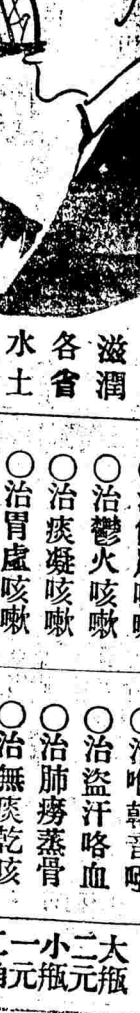 滋潤
各省
水土
○治鬱火咳嗽
○治痰凝咳嗽
○治胃虛咳嗽
○治盜汗咯血
○治肺癆蒸骨
○治無痰乾咳
大瓶二元
小瓶一元